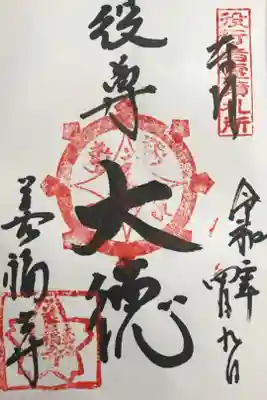 役行者霊蹟札所
奉拝
役尊
大徳
令和
九日
善福寺